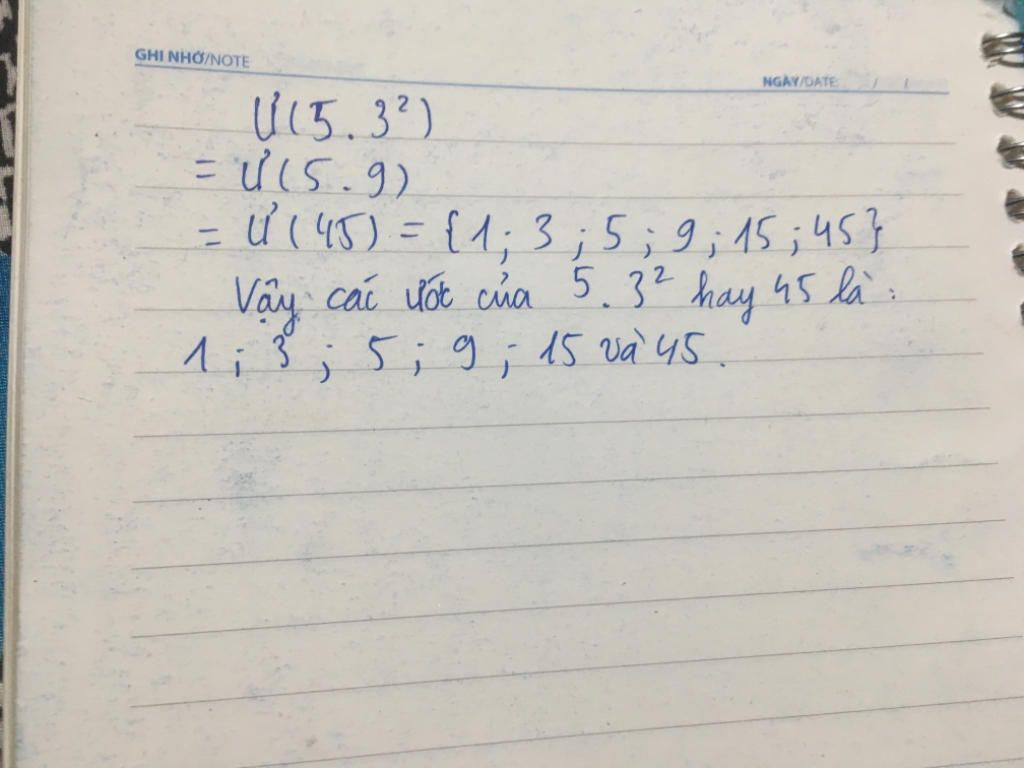 GHI NHỚ/NOTE
NGÀY/DATE / /
Ư(5.3²)
= Ư(5.9)
= Ư(45) = {1; 3; 5; 9; 15; 45}
Vậy các ước của 5.3² hay 45 là:
1; 3; 5; 9; 15 và 45.